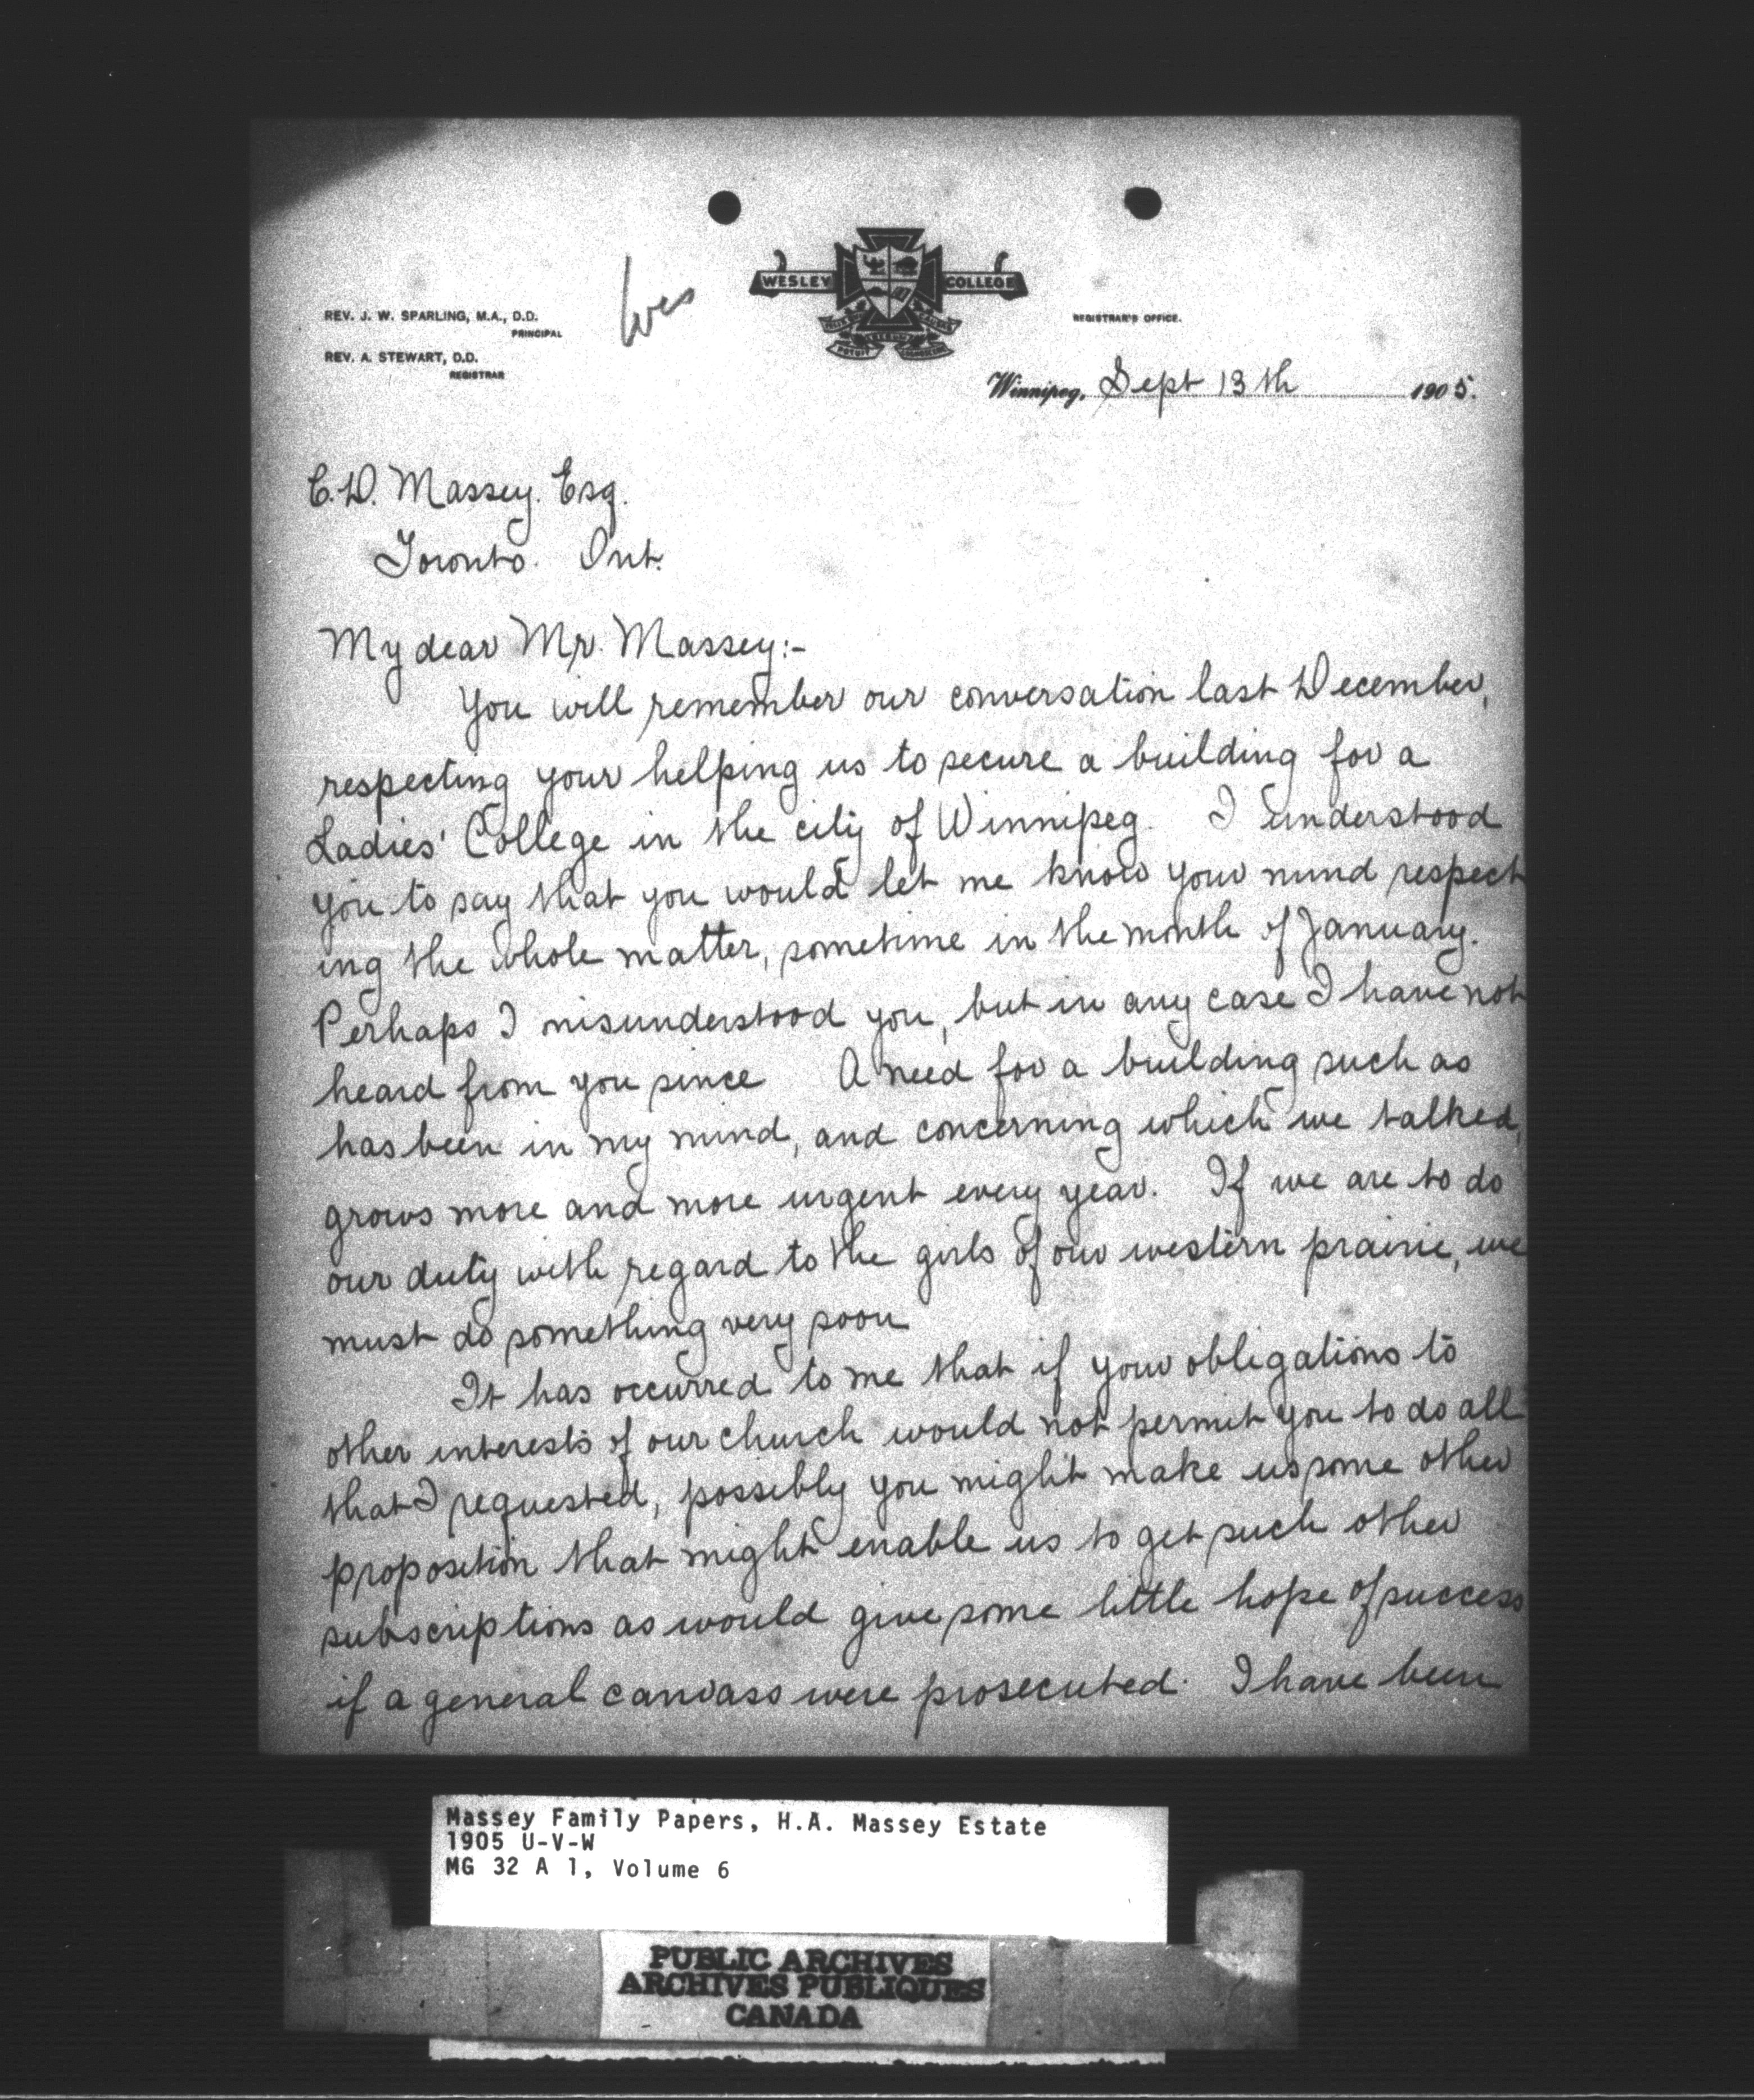 WESLEY COLLEGE
REV. J. W. SPARLING, M.A., D.D.
PRINCIPAL
REV. A. STEWART, D.D.
REGISTRAR
REGISTRAR'S OFFICE.
Winnipeg, Sept 13th 1905.
C.D. Massey. Esq.
Toronto. Ont.
My dear Mr. Massey:-
You will remember our conversation last December,
respecting your helping us to secure a building for a
Ladies' College in the city of Winnipeg. I understood
you to say that you would let me know your mind respect
ing the whole matter, sometime in the month of January.
Perhaps I misunderstood you, but in any case I have not
heard from you since A need for a building such as
has been in my mind, and concerning which we talked,
grows more and more urgent every year. If we are to do
our duty with regard to the girls of our western prairie, we
must do something very soon
It has occurred to me that if your obligations to
other interests of our church would not permit you to do all
that I requested, possibly you might make us some other
proposition that might enable us to get such other
subscriptions as would give some little hope of success
if a general canvass were prosecuted. I have been
Massey Family Papers, H.A. Massey Estate
1905 U-V-W
MG 32 A 1, Volume 6
PUBLIC ARCHIVES
ARCHIVES PUBLIQUES
CANADA